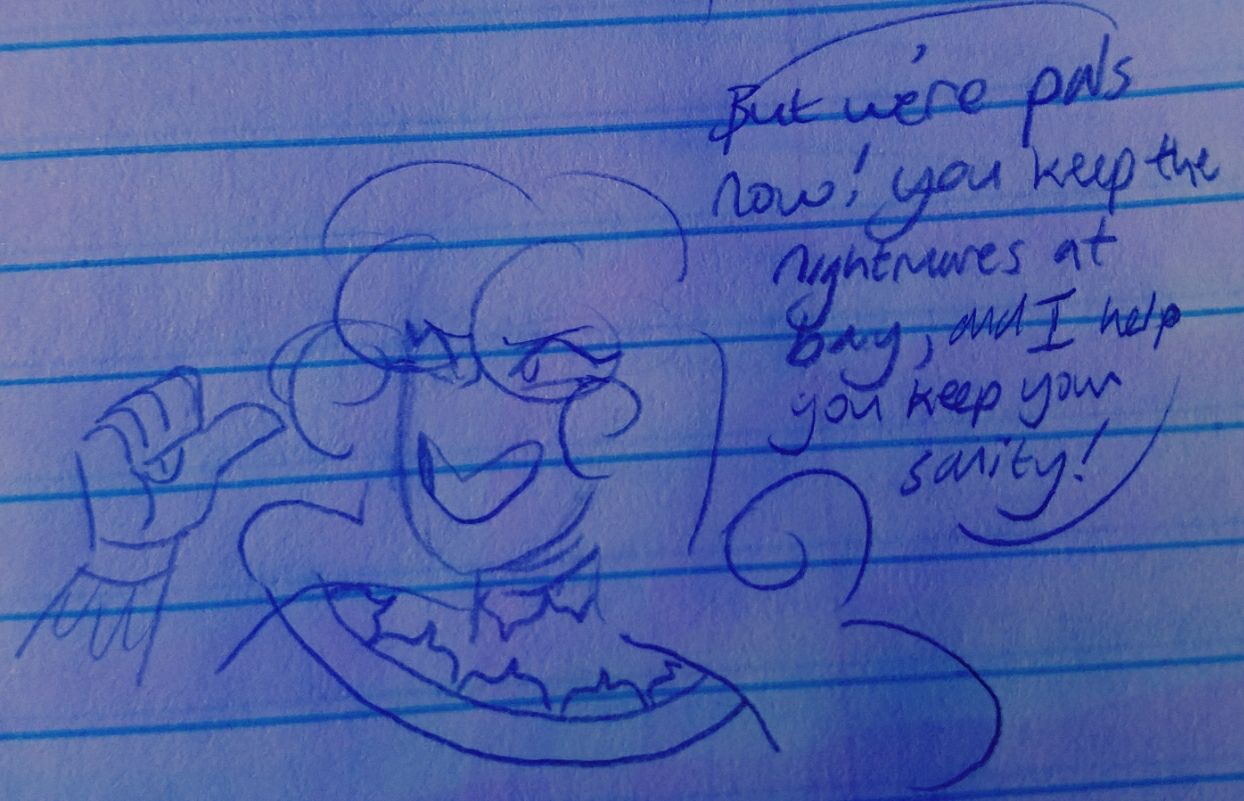 But we're pals
now! you keep the
nightmares at
bay, and I help
you keep your
sanity!